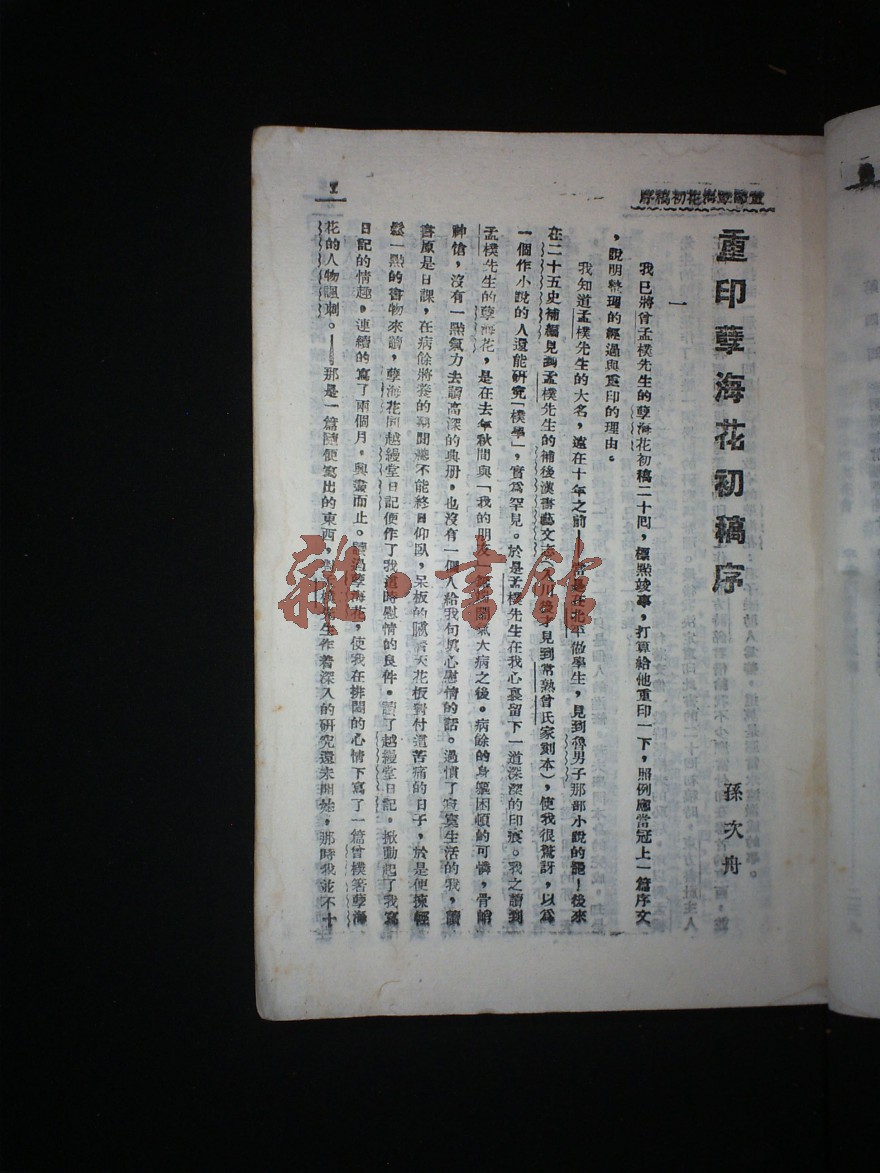 重印孽海花初稿序
重印孽海花初稿序
孫次舟
一
我已將曾孟樸先生的孽海花初稿二十回,標點竣事,打算給他重印一下,照例應當冠上一篇序文
,說明整理的經過與重印的理由。
我知道孟樸先生的大名,遠在十年之前—當是在北平做學生,見到魯男子那部小說的罷!後來
在二十五史補編見到孟樸先生的補後漢書藝文志(入川後才見到常熟曾氏家刻本),使我很驚訝,以爲
一個作小說的人還能研究「樸學」,實爲罕見。於是孟樸先生在我心裏留下一道深深的印痕。我之讀到
孟樸先生的孽海花,是在去年秋間與「我的朋友」 鬧氣大病之後。病餘的身軀困頓的可憐,骨
神愴,沒有一點氣力去讀高深的典册,也沒有一個人給我句眞心慰情的話。過慣了寂寞生活的我,讀
書原是日課,在病餘將養的期間總不能終日仰臥,呆板的 着天花板對付這苦痛的日子,於是便揀輕
鬆一點的書物來讀,孽海花同越縵堂日記便作了我這時慰情的良件。讀了越縵堂日記,掀動起了我寫
日記的情趣,連續的寫了兩個月,興盡而止。讀過孽海花,使我在排悶的心情下寫了一篇曾樸著孽海
花的人物諷刺。——那是一篇隨便寫出的東西,對孟樸先生作着深入的研究還未開始,那時我並不十
1
雜·書館